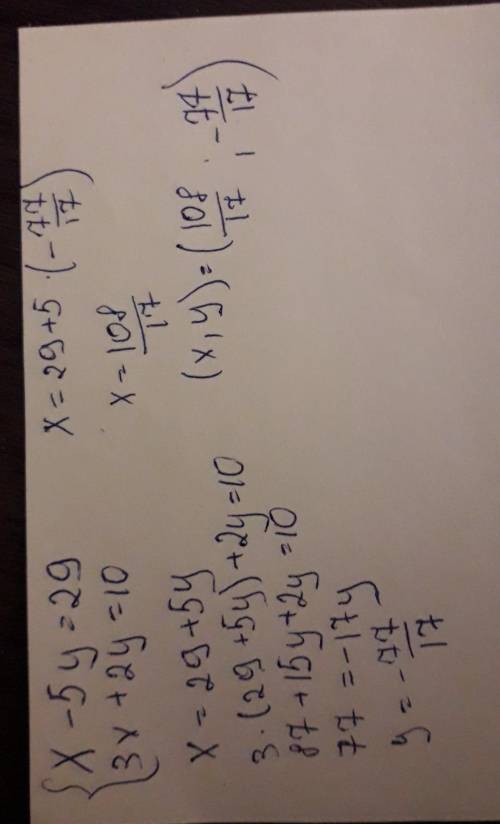 { x - 5y = 29
3x + 2y = 10
x = 29 + 5y
3 · (29 + 5y) + 2y = 10
87 + 15y + 2y = 10
77 = -17y
y = - 77/17
x = 29 + 5 · (- 77/17)
x = 108/17
(x, y) = (108/17, - 77/17)